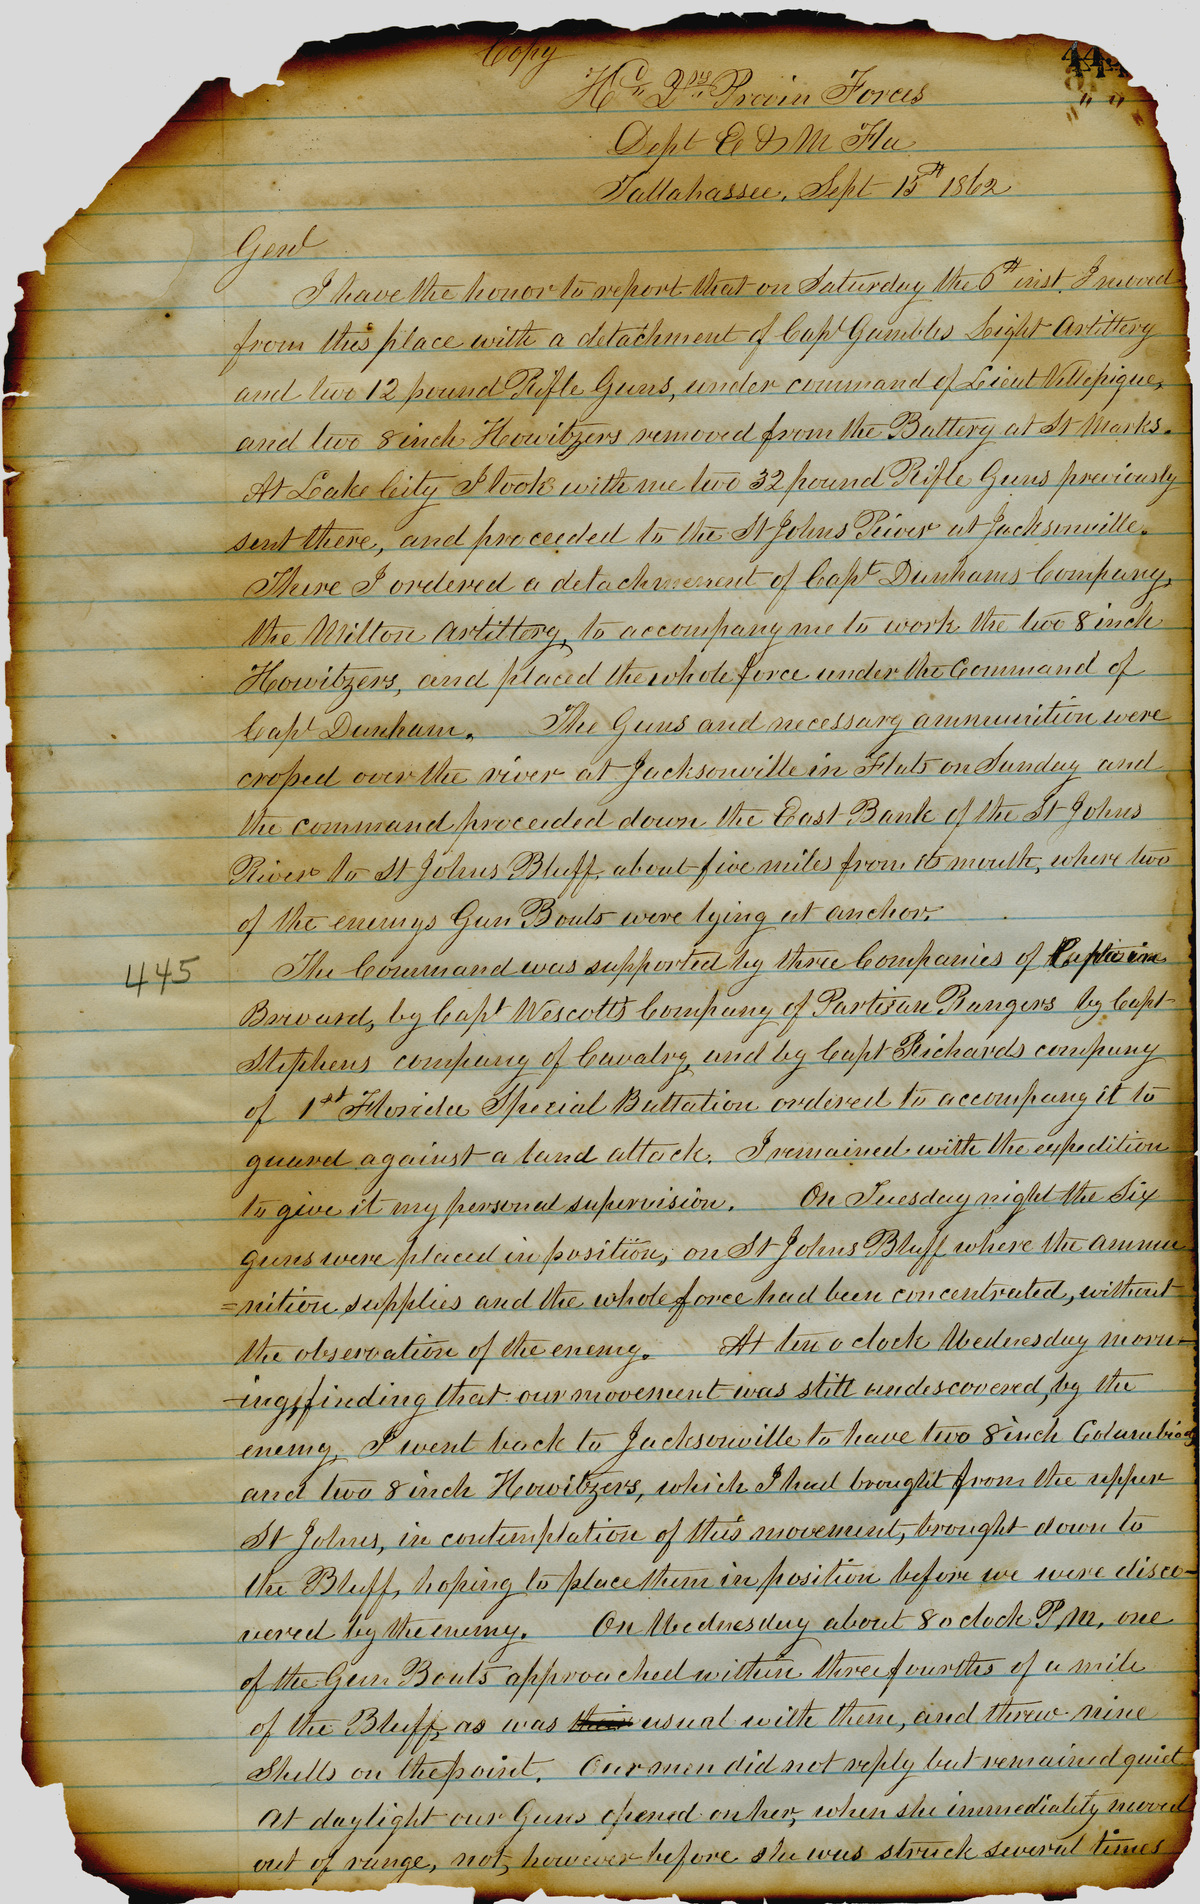 Copy
444
Hd. Qrs. Provin Forces
Dept E & M Fla
Tallahassee, Sept 15th 1862
Genl
I have the honor to report that on Saturday the 6th inst. I moved
from this place with a detachment of Capt Gambles Light Artillery
and two 12 pound Rifle Guns, under command of Lieut Villepigue,
and two 8 inch Howitzers removed from the Battery at St Marks.
At Lake City I took with me two 32 pound Rifle Guns previously
sent there, and proceeded to the St Johns River at Jacksonville.
There I ordered a detachment of Capt Dunhams Company,
the Milton Artillery, to accompany me to work the two 8 inch
Howitzers, and placed the whole force under the Command of
Capt Dunham. The Guns and necessary ammunition were
crossed over the river at Jacksonville in Flats on Sunday and
the command proceeded down the East Bank of the St Johns
River to St Johns Bluff, about five miles from its mouth, where two
of the enemys Gun Boats were lying at anchor.
445
The Command was supported by three Companies of Captain
Brevard, by Capt Wescotts Company of Partisan Rangers by Capt
Stephens company of Cavalry, and by Capt Richards company
of 1st Florida Special Battalion ordered to accompany it to
guard against a land attack. I remained with the expedition
to give it my personal supervision. On Tuesday night the Six
guns were placed in position, on St Johns Bluff where the ammu
=nition supplies and the whole force had been concentrated, without
the observation of the enemy. At ten o clock Wednesday morn-
-ing, finding that our movement was still undiscovered, by the
enemy, I went back to Jacksonville to have two 8 inch Columbiads
and two 8 inch Howitzers, which I had brought from the upper
St Johns, in contemplation of this movement, brought down to
the Bluff, hoping to place them in position before we were disco-
vered by the enemy. On Wednesday about 8 o clock P.M. one
of the Gun Boats approached within three fourths of a mile
of the Bluff, as was their usual with them, and threw nine
Shells on the point. Our men did not reply but remained quiet
At daylight our Guns opened on her, when she immediately moved
out of range, not, however before she was struck several times